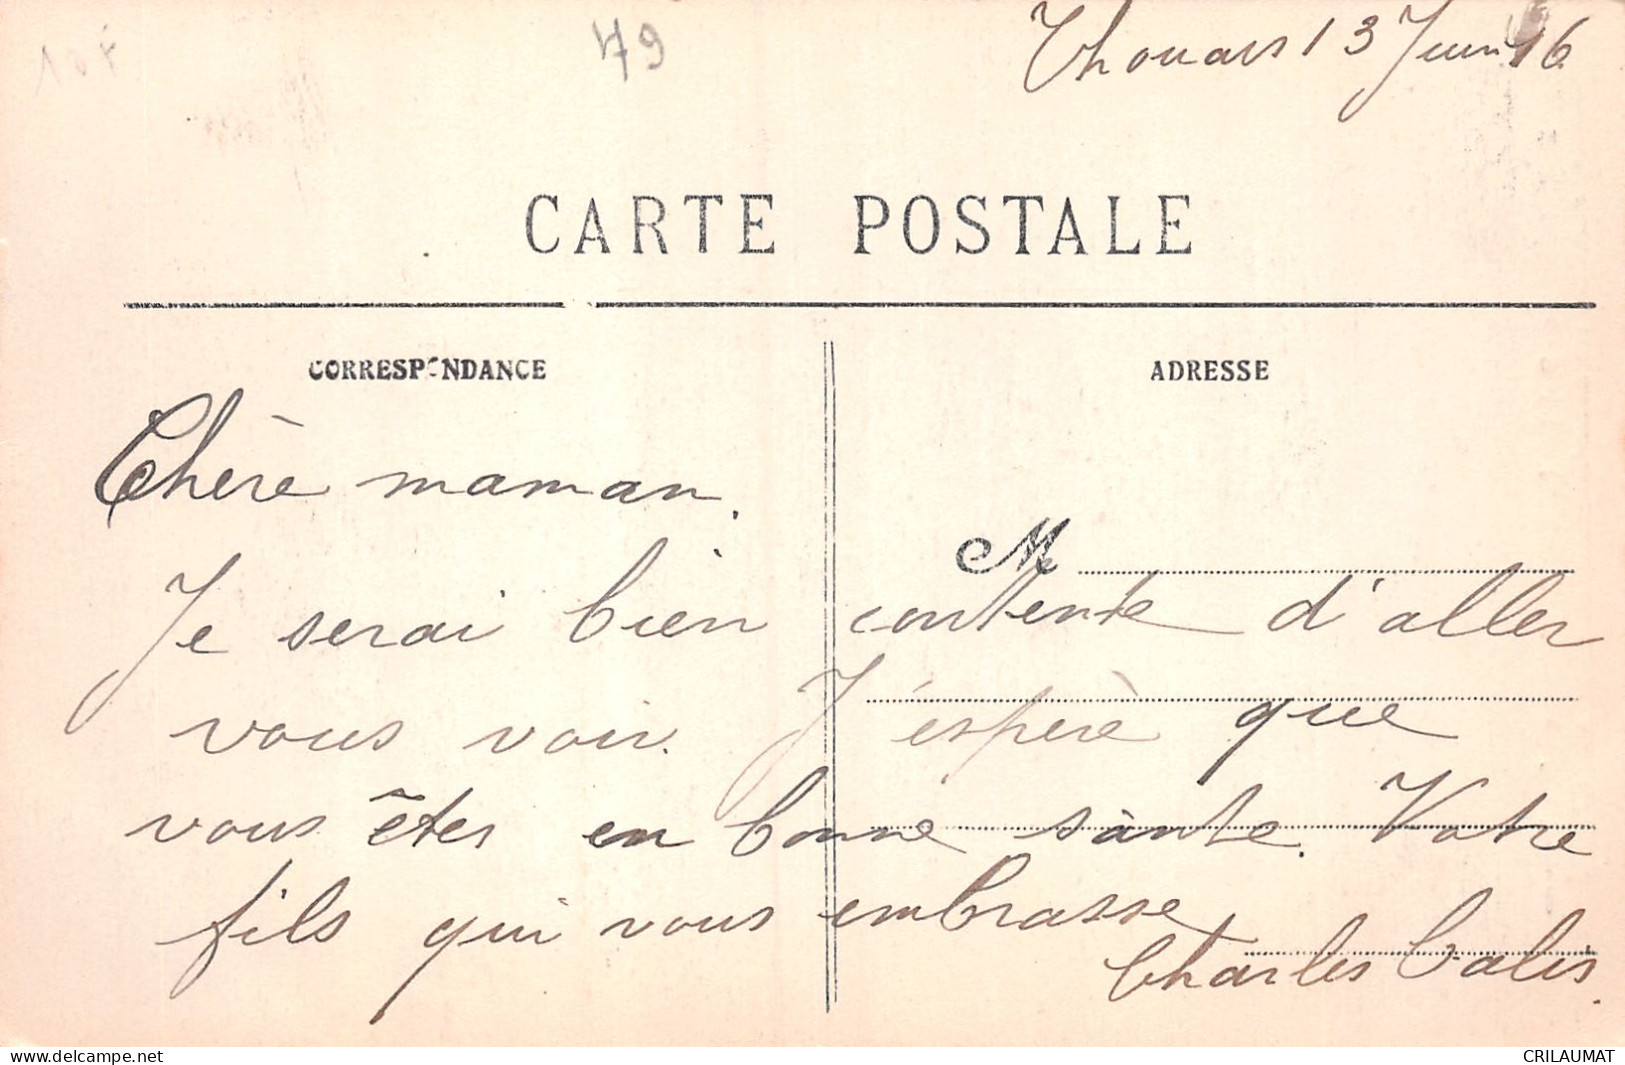 10F
79
Thouars 13 Juin 16
CARTE POSTALE
CORRESPONDANCE
ADRESSE
Chère maman.
M
Je serai bien contente d'aller
vous voir. J'espère que
vous êtes en bonne sànte. Votre
fils qui vous embrasse
Charles
delcampe.net
CRILAUMAT